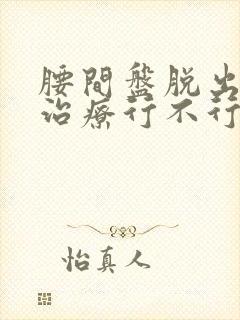 腰間盤脱出
治療行不行
怡真人